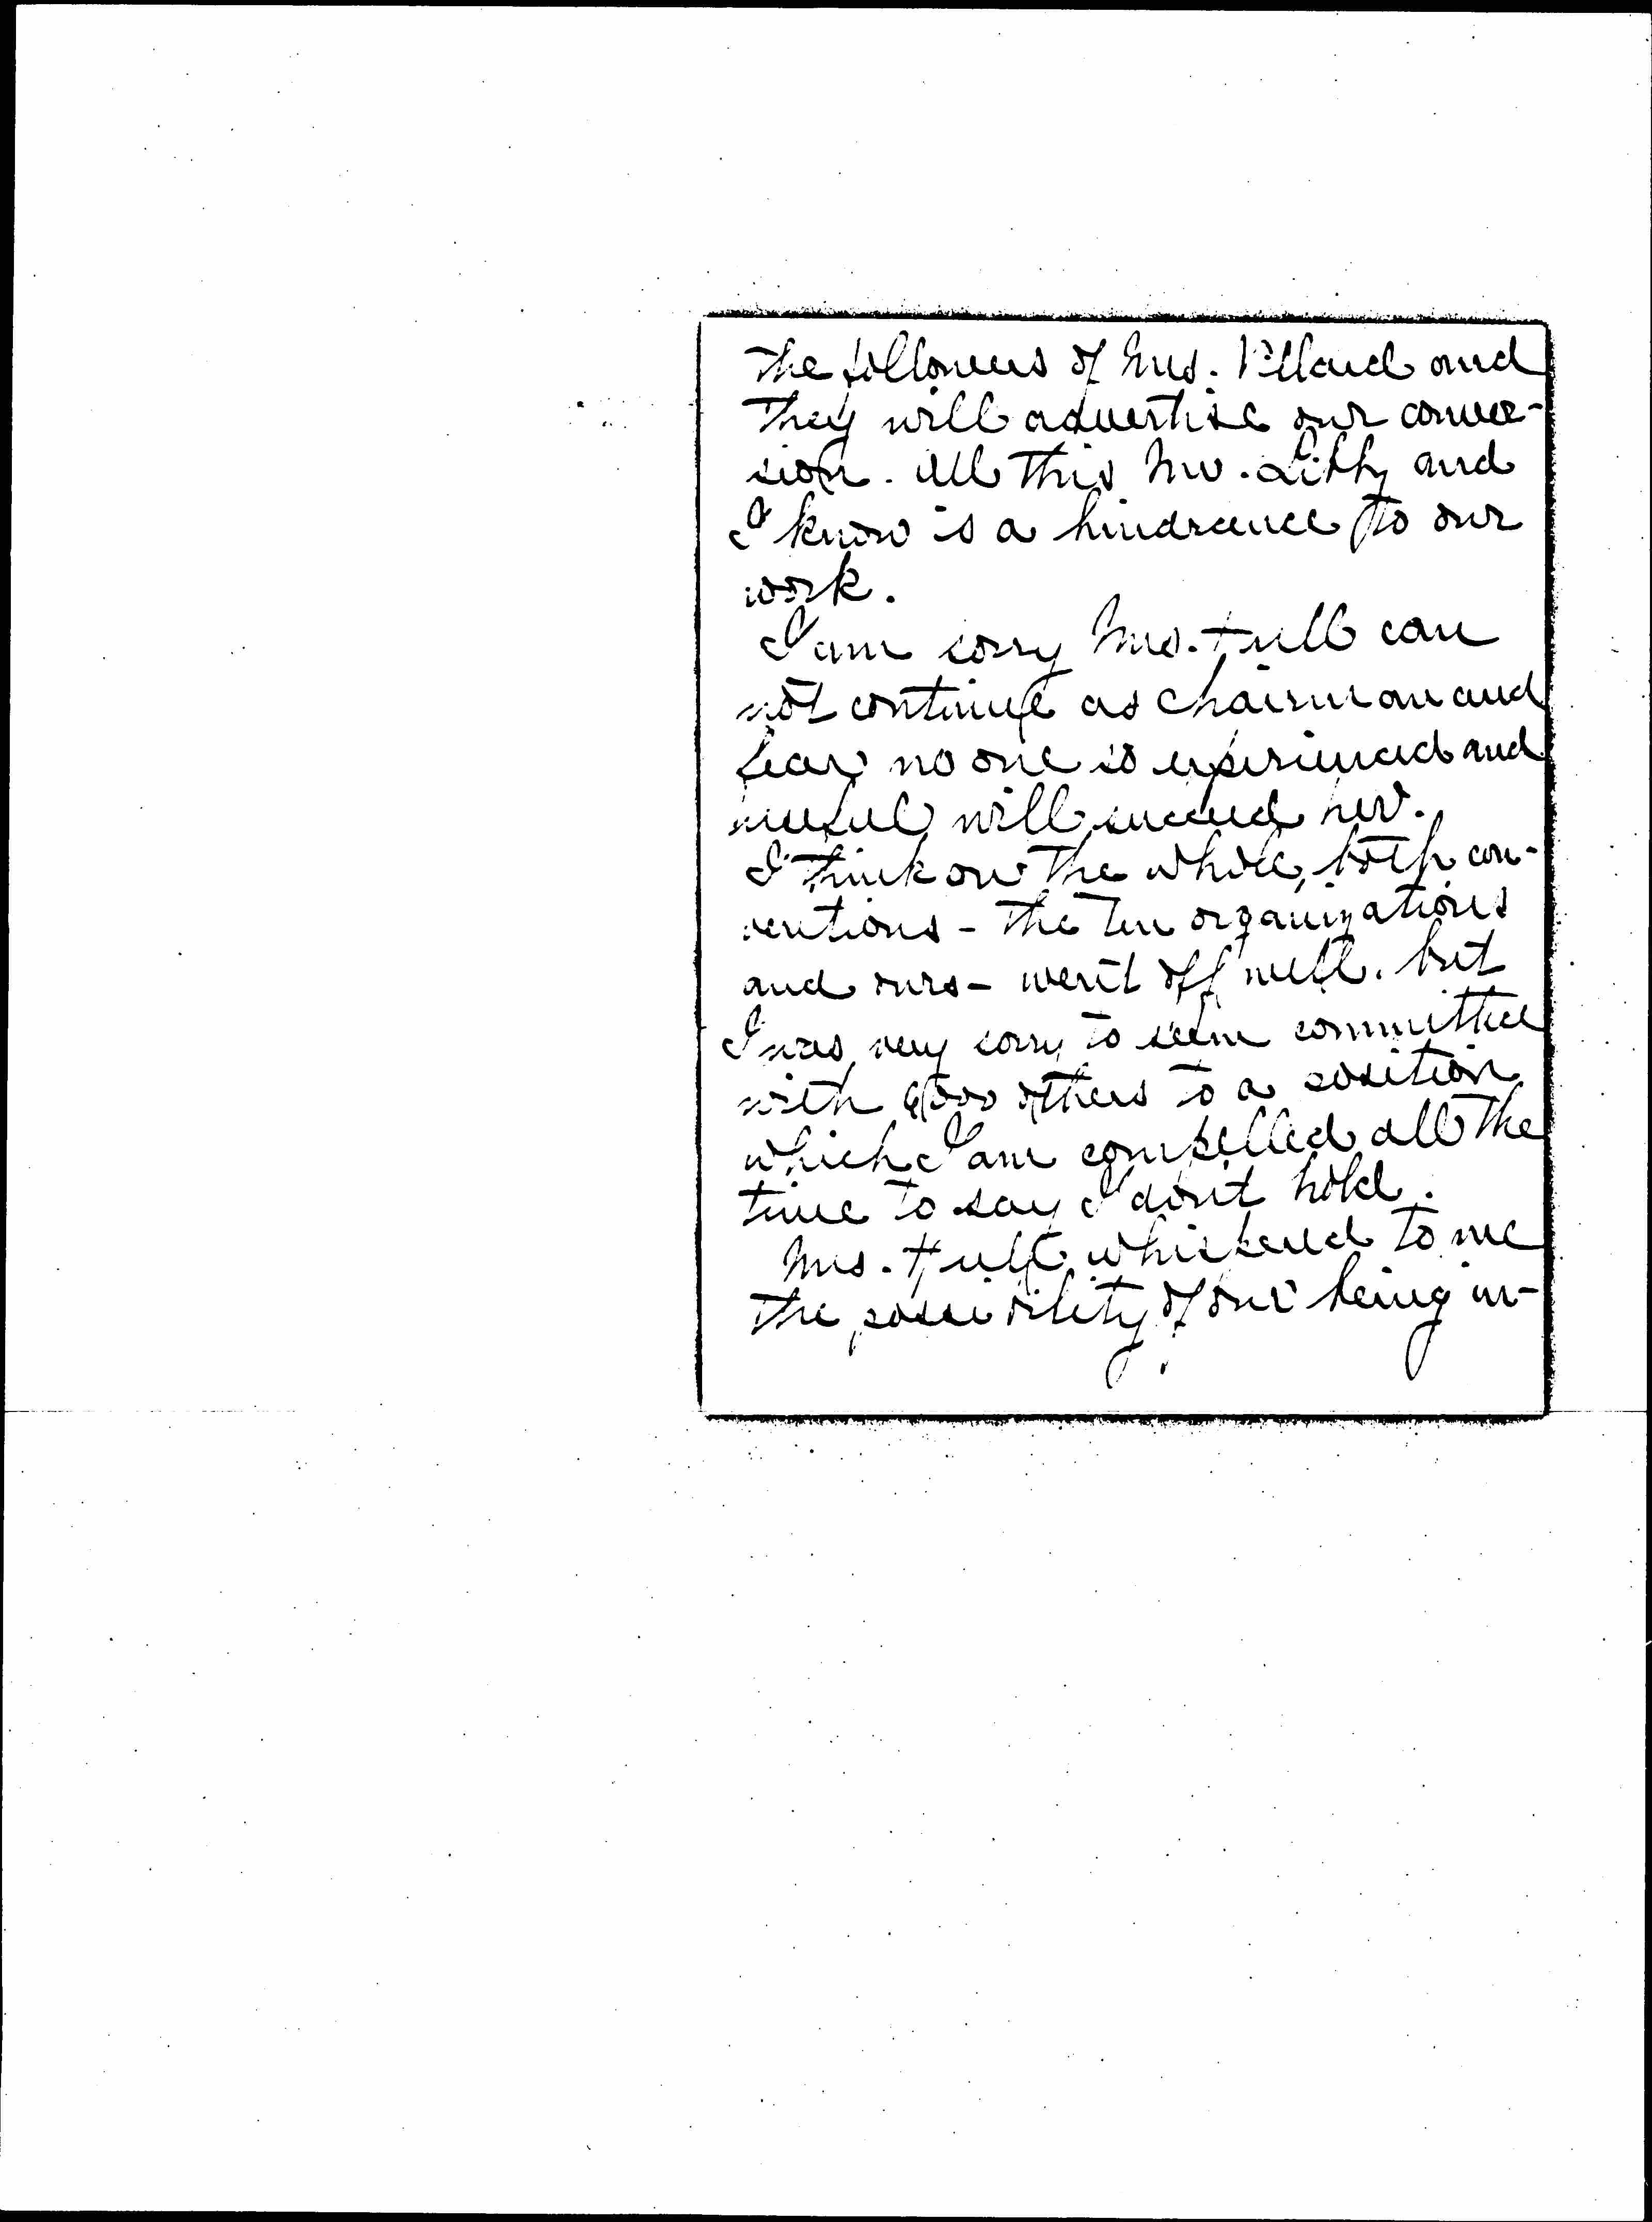 the followers of Mrs. Villard and
they will advertise our conver-
sion. All this Mr. Libby and
I know is a hindrance to our
work.
I am sorry Mrs. Tull can
not continue as chairman and
fear no one so experienced and
useful will succeed her.
I think on the whole, both con-
ventions - the ten organizations
and ours - went off well. but
I was very sorry to seem committed
with 6000 others to a position
which I am compelled all the
time to say I don't hold.
Mrs. Tull whispered to me
the possibility of our being in-